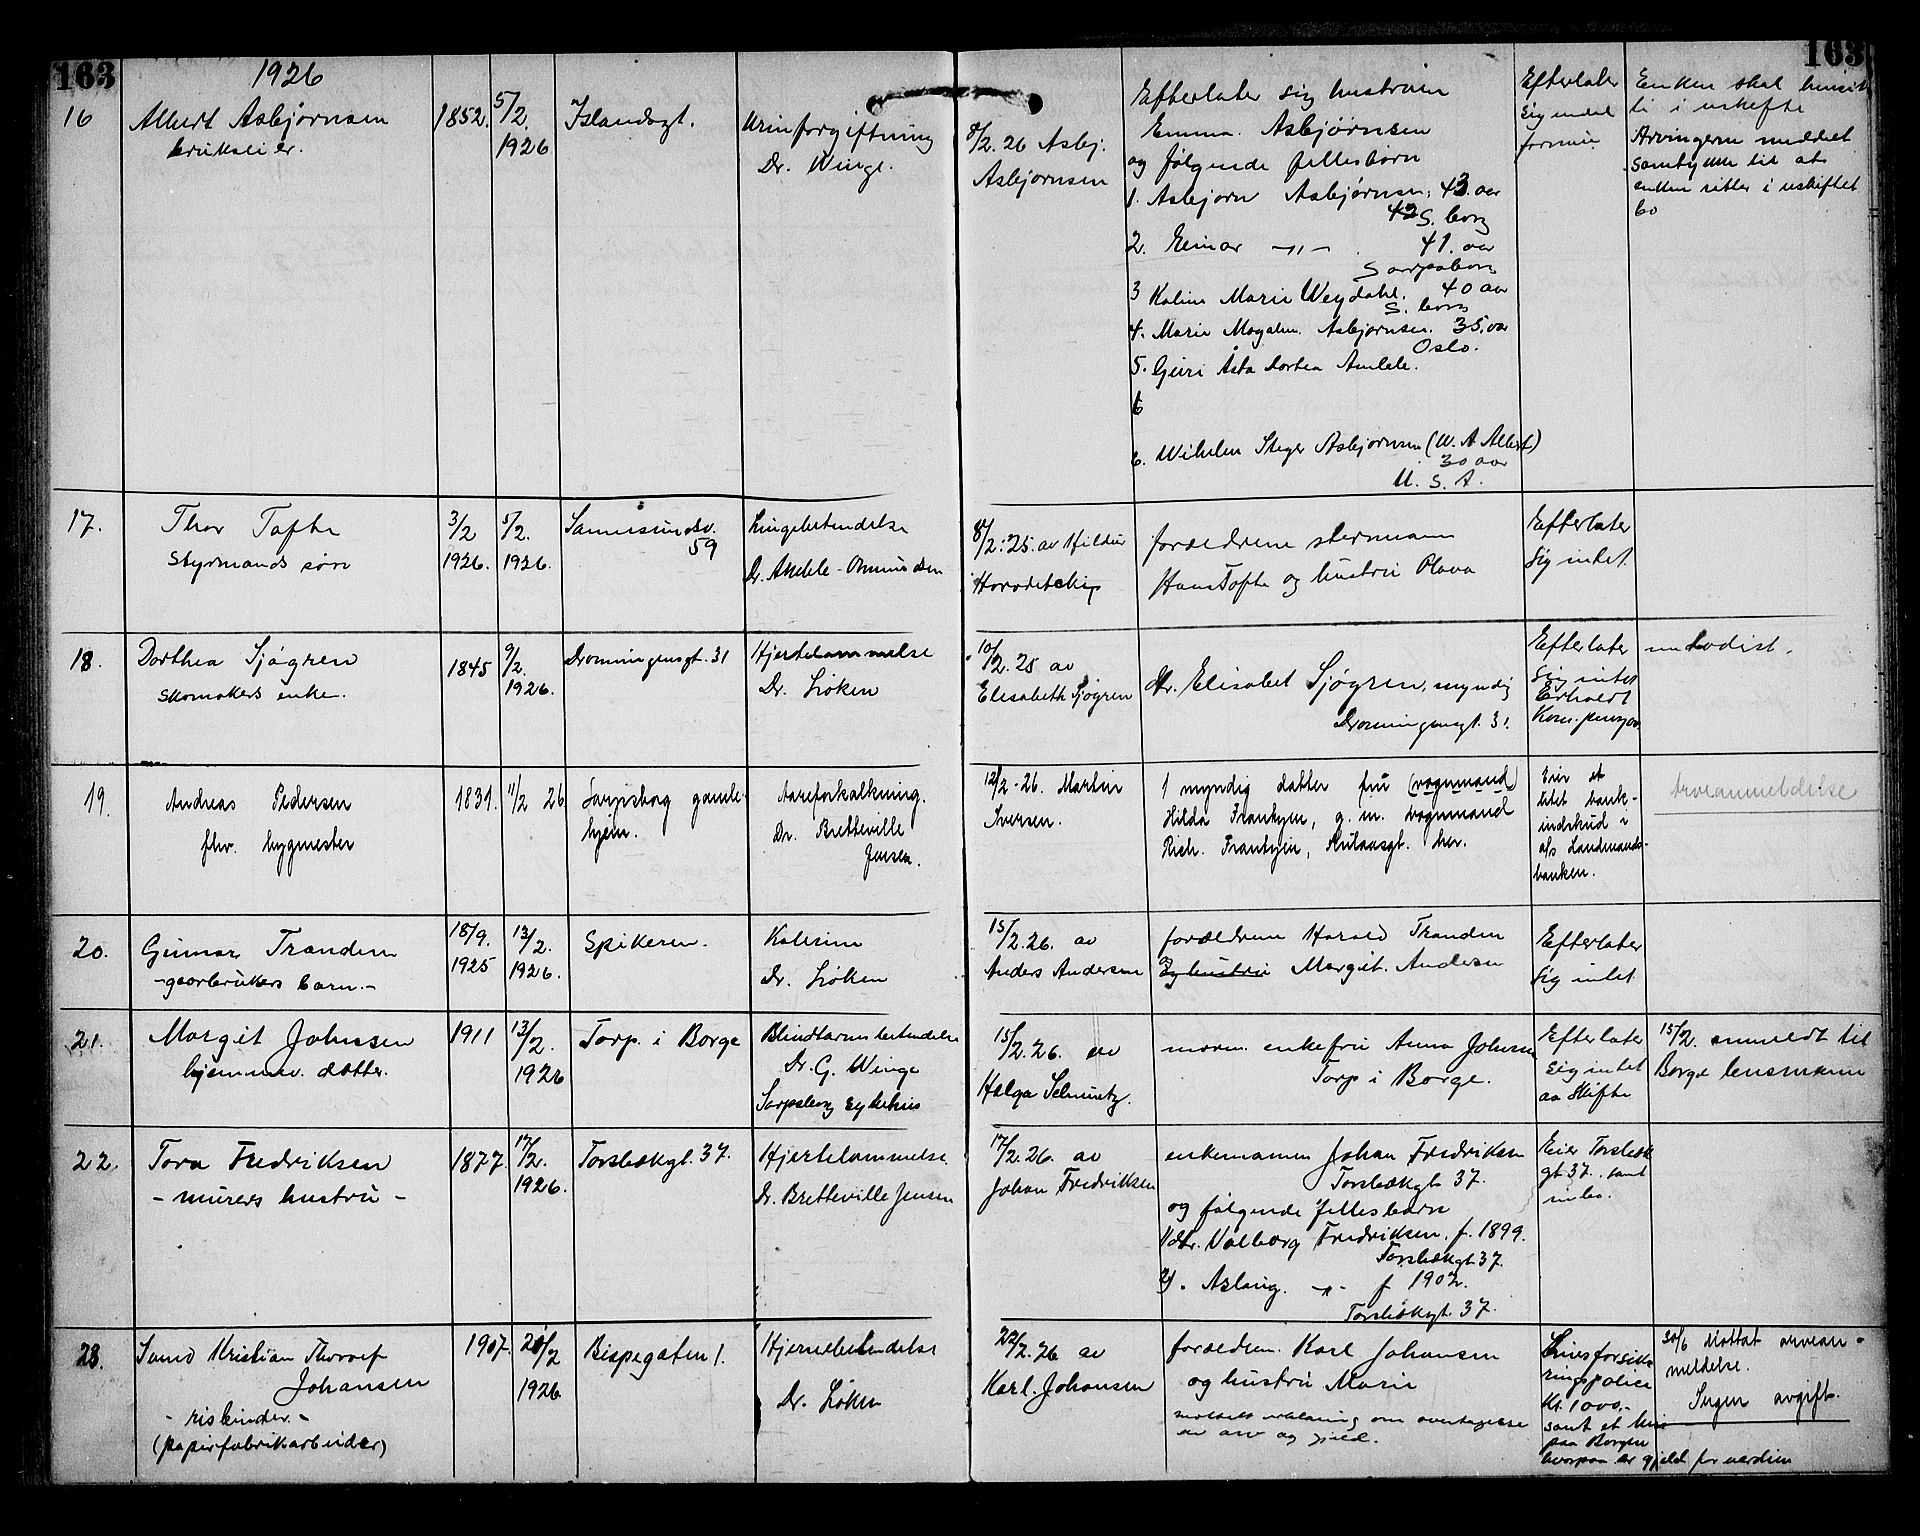 163
163
1926
16
Albert Asbjørnsen
brukseier.
1852.
5/2.
1926
Islandsgt.
Urinforgiftning
Dr. Winge.
8/2.26 Asbj.
Asbjørnsen
Efterlater sig hustruen
Emma Asbjørnsen
og følgende fellesbørn
1. Asbjørn Asbjørnsen, 43 aar
S. borg
2. Reinar -"- 41. aar
Sarpsborg
3 Kalina Marie Weydahl. 40 aar
S. borg
4. Marie Magalen. Asbjørnsen. 35. aar
Oslo.
5. Guri Åsta Dortea Amlele.
6
6. Wilhelm Steger Asbjørnsen (W. A Albert)
30 aar
U. S. A.
Efterlater
sig endel
formue
Enken skal hensit
te i uskifte
Arvingerne meddelt
samtykke til at
enken sitter i uskiftet
bo
17.
Thor Tofte
Styrmands søn
3/2
1926.
5/2.
1926.
Sannesundsv.
59
Lungebetendelse
Dr. Amlele-Omundsen
8/2.25. av Hildur
forældrene stermann
Hans Tofte og hustru Olava
Efterlater
sig intet
18.
Dorthea Sjøgren
skomakers enke.
1845
9/2.
1926.
Dronningensgt. 31
Hjertelammelse
Dr. Løken
10/2.25 av
Elisabeth Sjøgren
dtr. Elisabet Sjøgren, myndig
Dronningensgt. 31.
Efterlater
sig intet
Erholdt
Kom. pensjon
metodist.
19.
Andreas Pedersen
fhv. bygmester
1831.
11/2 26
Sarpsborg gamle-
hjem.
Aareforkalkning.
Dr. Bretteville
Jensen.
12/2-26. Martin
Iversen.
1 myndig datter fru (vognmand)
Hilda Frantzen, g. m. vognmand
Rich. Frantzen, Kulaasgt. her.
Eier et
litet bank-
indskud i
a/s Landmands-
banken.
Arveanmeldelse
20.
Gunnar Tranden
-gaarbrukers barn.-
18/9.
1925
13/2.
1926.
Spikeren.
Kolerine
Dr. Løken
15/2.26. av
Anders Andersen
forældrene Harald Tranden
og hustru Margit. Andersen
Efterlater
sig intet
21.
Margit Johnsen
hjemmev. datter.
1911
13/2.
1926
Torp. i Borge
Blindtarmsbetendelse
Dr. G. Winge
Sarpsborg sykehus
15/2.26. av
Helga Schmutz.
moren enkefru Anna Johnsen
Torp i Borge.
Efterlater
sig intet
aa Skifte
15/2. anmeldt til
Borge lensmann
22.
Tora Fredriksen
- murers hustru -
1877.
17/2.
1926.
Torsbækgt. 37.
Hjertelammelse
Dr. Bretteville Jensen
17/2.26. av
Johan Fredriksen
enkemannen Johan Fredriksen
Torsbækgt 37.
og følgende fellesbarn
1) dtr. Valborg Fredriksen. f. 1899.
Torsbækgt 37.
2). Aslaug. -"- f 1902.
Torsbækgt. 37.
Eier Torsbæk
gt 37. samt
innbo.
23.
Kristian Thoralf
Johansen
- risbinder. -
(papirfabrikarbeider)
1907.
20/2
1926
Bispegaten 1.
Hjernebetendelse
Dr. Løken
22/2.26 av
Karl. Johansen
forældrene Karl Johansen
og hustru Marie
meddelt erklæring om overtagelse
av arv og gjeld.
Livsforsik-
ringspolice
Kr. 1000,-
samt et hus
paa Borgen
hvorpaa er gjeld for værdien
30/6 Mottat arvean-
meldelse.
Ingen avgift.